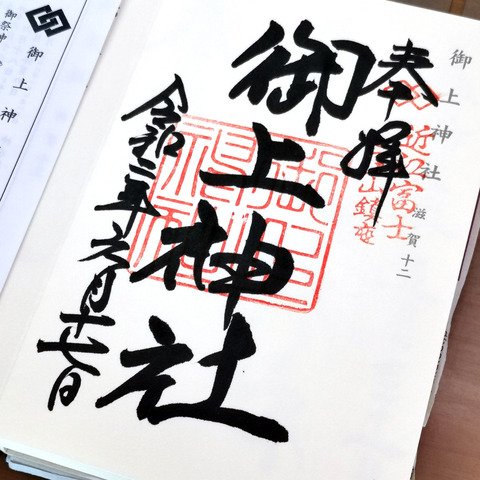 御上神社
滋賀十二
奉拝
近江富士
山鎮座
御上神社
令和二年六月十七日
御上神
御祭神